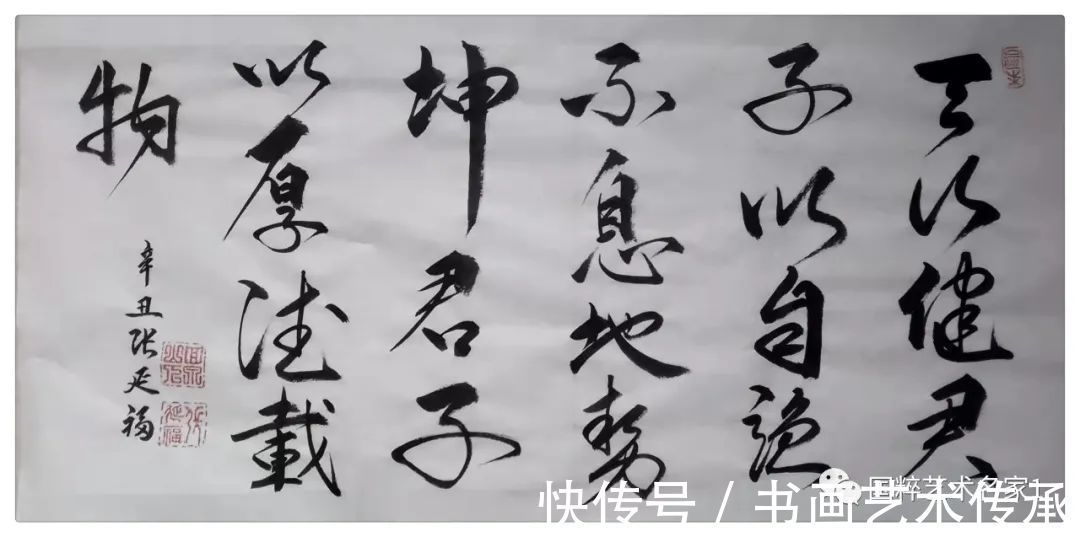 天行健君
子以自强
不息地势
坤君子
以厚德载
物
辛丑张延福
国粹艺术名家
快传号 / 书画艺术传承